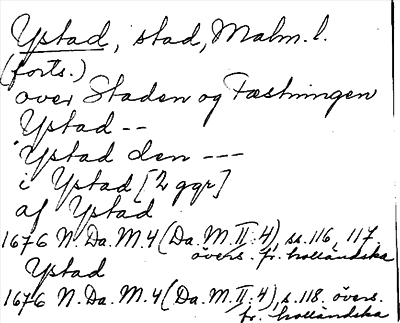 Ystad, stad, Malm. l.
(forts.)
over Staden og Fæstningen
Ystad --
Ystad den ---
i Ystad [2 ggr]
af Ystad
1676 N. Da. M. 4 (Da. M. II: 4), ss. 116, 117,
övers. fr. holländska
Ystad
1676 N. Da. M. 4 (Da. M. II: 4), s. 118. övers.
fr. holländska